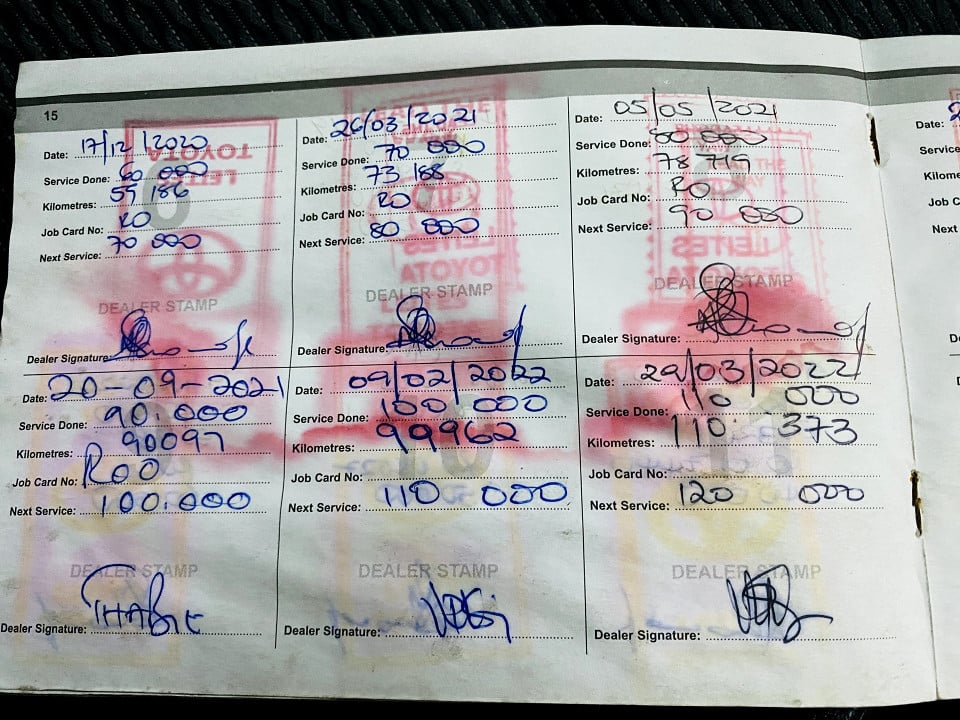 15
Date: 17/12/2020
Service Done: 60 000
Kilometres: 59 186
Job Card No: RO
Next Service: 70 000
DEALER STAMP
Dealer Signature:
Date: 26/03/2021
Service Done: 70 000
Kilometres: 73 188
Job Card No: RO
Next Service: 80 000
DEALER STAMP
Dealer Signature:
Date: 05/05/2021
Service Done: 80 000
Kilometres: 78 719
Job Card No: RO
Next Service: 90 000
DEALER STAMP
Dealer Signature:
Date: 20-09-2021
Service Done: 90.000
Kilometres: 90097
Job Card No: ROO
Next Service: 100.000
DEALER STAMP
Dealer Signature:
Date: 09/02/2022
Service Done: 100 000
Kilometres: 99962
Job Card No:
Next Service: 110 000
DEALER STAMP
Dealer Signature:
Date: 29/03/2022
Service Done: 110 000
Kilometres: 110 373
Job Card No:
Next Service: 120 000
DEALER STAMP
Dealer Signature:
Date:
Service
Job C
Next